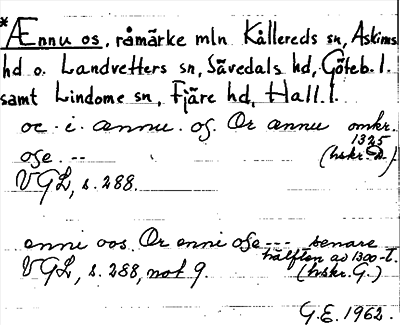 *Ænnu os, råmärke mln Kållereds sn, Askims
hd o. Landvetters sn, Sävedals hd, Göteb. l.
samt Lindome sn, Fjäre hd, Hall. l.
oc. i. ænnu. os. Or ænnu omkr.
ose. -- 1325
VGL, s. 288. (hskr.
enni oos. Or enni ose --- senare
hälften av 1300-t.
VGL, s. 288, not 9. (hskr. G.)
G.E. 1962.